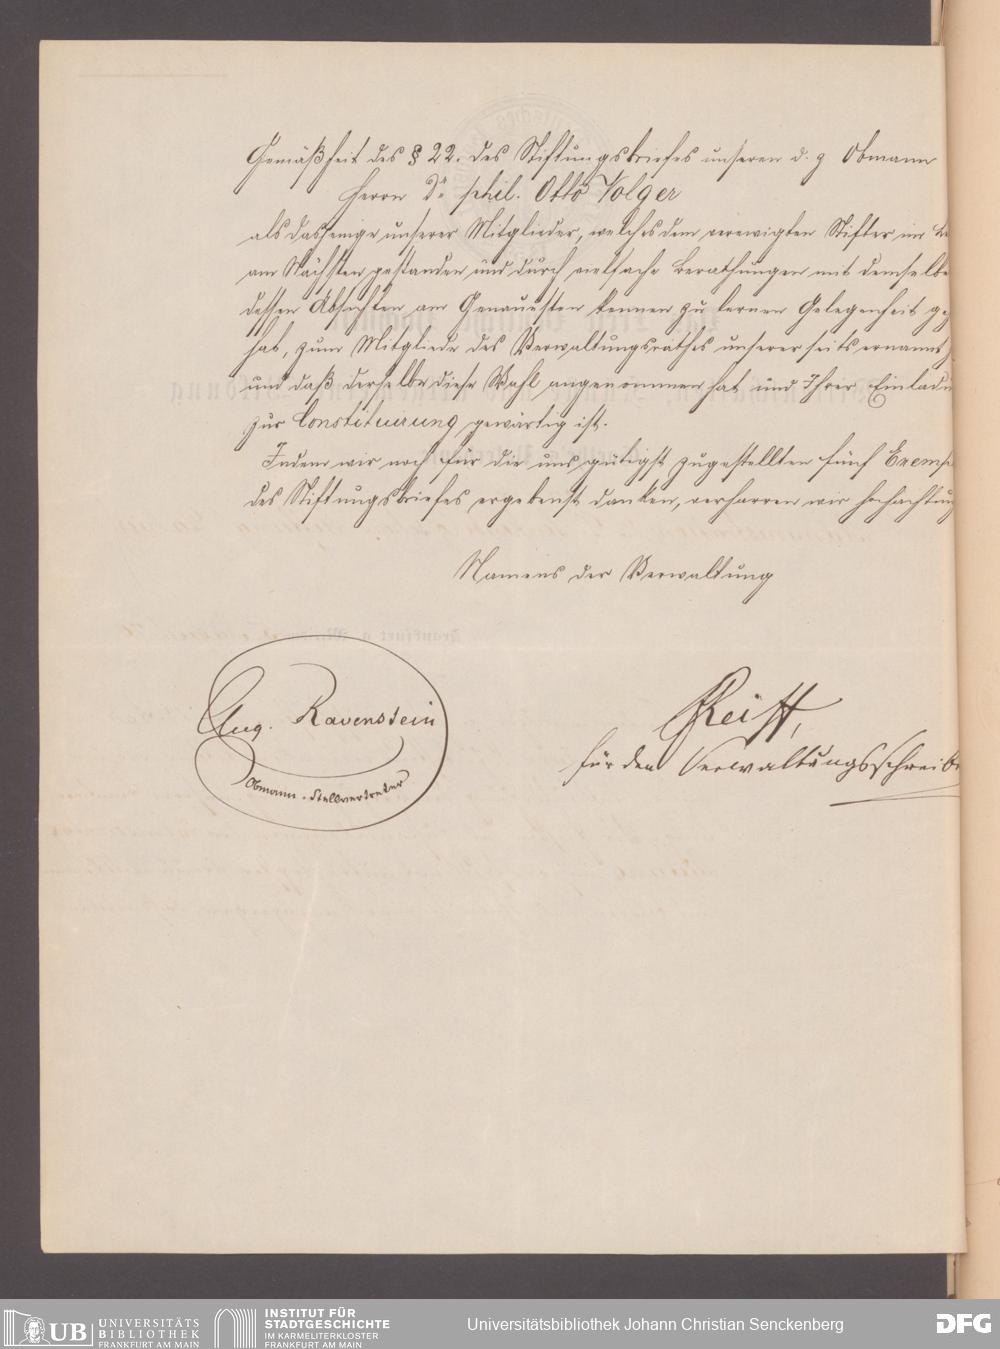 Gemäßheit des § 22. des Stiftungsbriefes unseren d. z Obmann
Herrn Dr phil. Otto Volger
als dasjenige unserer Mitglieder, welches dem verewigten Stifter im
am Nächsten gestanden und durch vielfache Berathungen mit demselbe
dessen Absichten am Genauesten kennen zu lernen Gelegenheit ge
hat, zum Mitgliede des Verwaltungsrathes unsererseits ernannt
und daß derselbe diese Wahl angenommen hat und Ihrer Einladu
zur Constituirung gewärtig ist.
Indem wir noch für die uns gütigst zugestellten fünf Exempl
des Stiftungsbriefes ergebenst danken, verharren wir hochachtung
Namens der Verwaltung
Aug. Ravenstein
Obmann-Stellvertreter
Reiff,
für den Verwaltungsschreibe
UB UNIVERSITÄTS
BIBLIOTHEK
FRANKFURT AM MAIN
INSTITUT FÜR
STADTGESCHICHTE
IM KARMELITERKLOSTER
FRANKFURT AM MAIN
Universitätsbibliothek Johann Christian Senckenberg
DFG